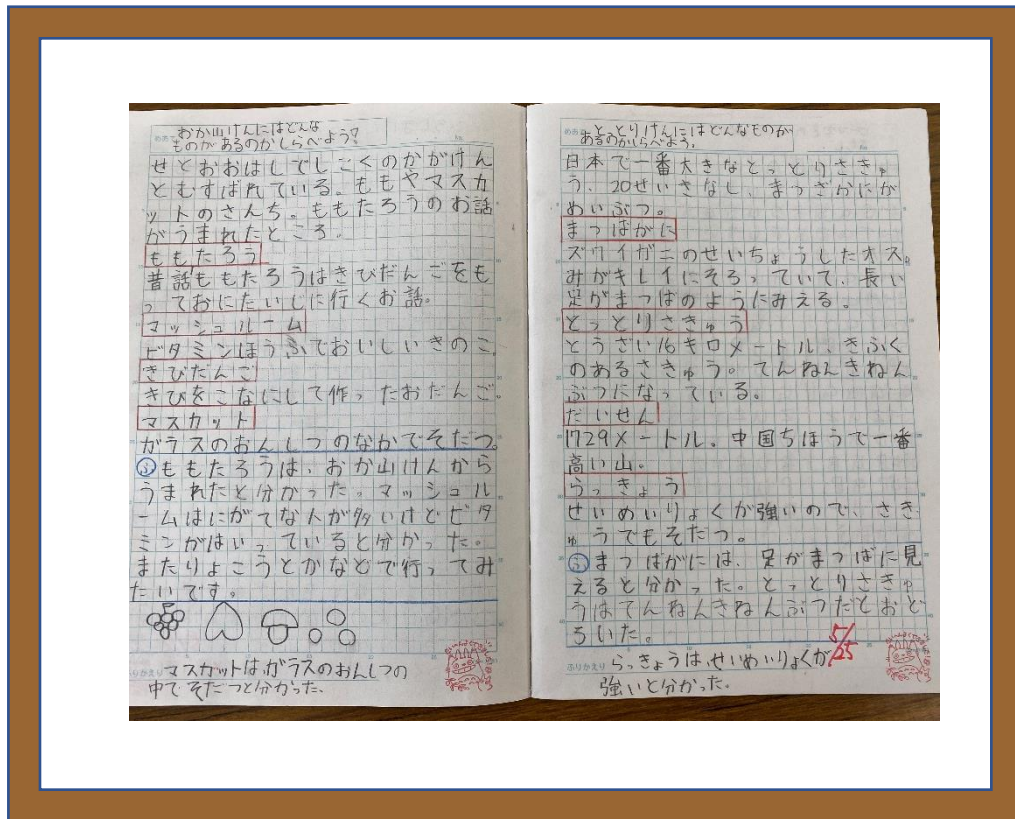 めあて おか山けんにはどんな
ものがあるのかしらべよう?
せとおおはしでしこくのかがけん
とむすばれている。ももやマスカ
ットのさんち。ももたろうのお話
がうまれたところ。
ももたろう
昔話ももたろうはきびだんごをも
っておにたいじに行くお話。
マッシュルーム
ビタミンほうふでおいしいきのこ。
きびだんご
きびをこなにして作ったおだんご。
マスカット
ガラスのおんしつのなかでそだつ。
ふももたろうは、おか山けんから
うまれたと分かった。マッシュル
ームはにがてな人が多いけどビタ
ミンがはいっていると分かった。
またりょこうとかなどで行ってみ
たいです。
ふりかえり マスカットは、ガラスのおんしつの
中でそだつと分かった。
めあて とっとりけんにはどんなものか
あるのかしらべよう。
日本で一番大きなとっとりさきゅ
う、20せいきなし、まつざかにが
めいぶつ。
まつばがに
ズワイガニのせいちょうしたオス。
みがキレイにそろっていて、長い
足がまつばのようにみえる。
とっとりさきゅう
とうざい16キロメートル、きふく
のあるさきゅう。てんねんきねん
ぶつになっている。
だいせん
1729メートル。中国ちほうで一番
高い山。
らっきょう
せいめいりょくが強いので、さき
ゅうでもそだつ。
ふまつばがには、足がまつばに見
えると分かった。とっとりさきゅ
うはてんねんきねんぶつだとおど
ろいた。
5/25
ふりかえり らっきょうは、せいめいりょくが
強いと分かった。